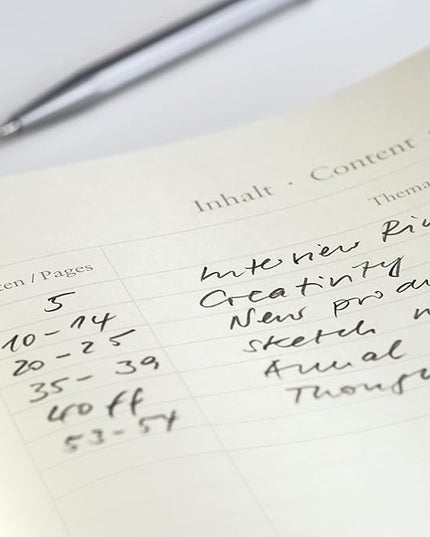 Inhalt · Content ·
ten / Pages Thema
5 Interview
10 - 14 Creativity
20 - 25 New produ
35 - 39 Sketch
40 ff Annual
53 - 54 Thoug